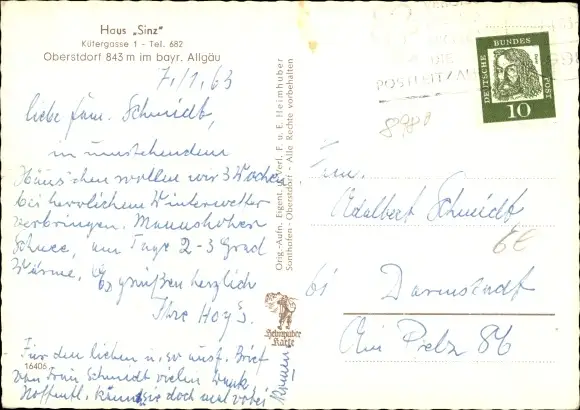 Haus „Sinz"
Kütergasse 1 - Tel. 682
Oberstdorf 843 m im bayr. Allgäu
7./1.63
liebe Fam. Schmidt,
in umstehendem
Häuschen wollen wir 3 Wochen
bei herrlichem Winterwetter
verbringen. Mannshoher
Schnee, am Tage 2-3 Grad
Wärme. Es grüßen herzlich
Ihre Hoy's.
Für den lieben u. so ausf. Brief
von Frau Schmidt vielen Dank
Hoffentl. können sie doch mal
16405
Orig.-Aufn. Eigent. u. Verl. F. u. E. Heimhuber
Sonthofen-Oberstdorf - Alle Rechte vorbehalten
Heimhuber
Karte
DIE
POSTLEITZAHL
DEUTSCHE BUNDESPOST
10
8980
Fam.
Adalbert Schmidt
6E
61 Darmstadt
Am 86